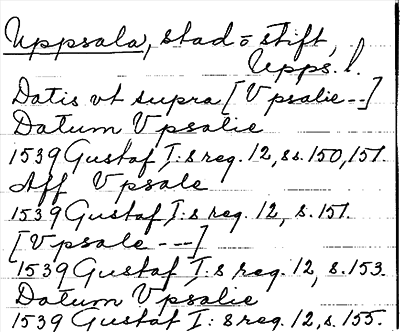 Uppsala, stad o stift,
Upps. l.
Datis vt supra [Vpsalie --]
Datum Vpsalie
1539 Gustaf I:s reg. 12, ss. 150, 151.
Aff Vpsale
1539 Gustaf I:s reg. 12, s. 151.
[Vpsale ---]
1539 Gustaf I:s reg. 12, s. 153.
Datum Vpsalie
1539 Gustaf I:s reg. 12, s. 155.